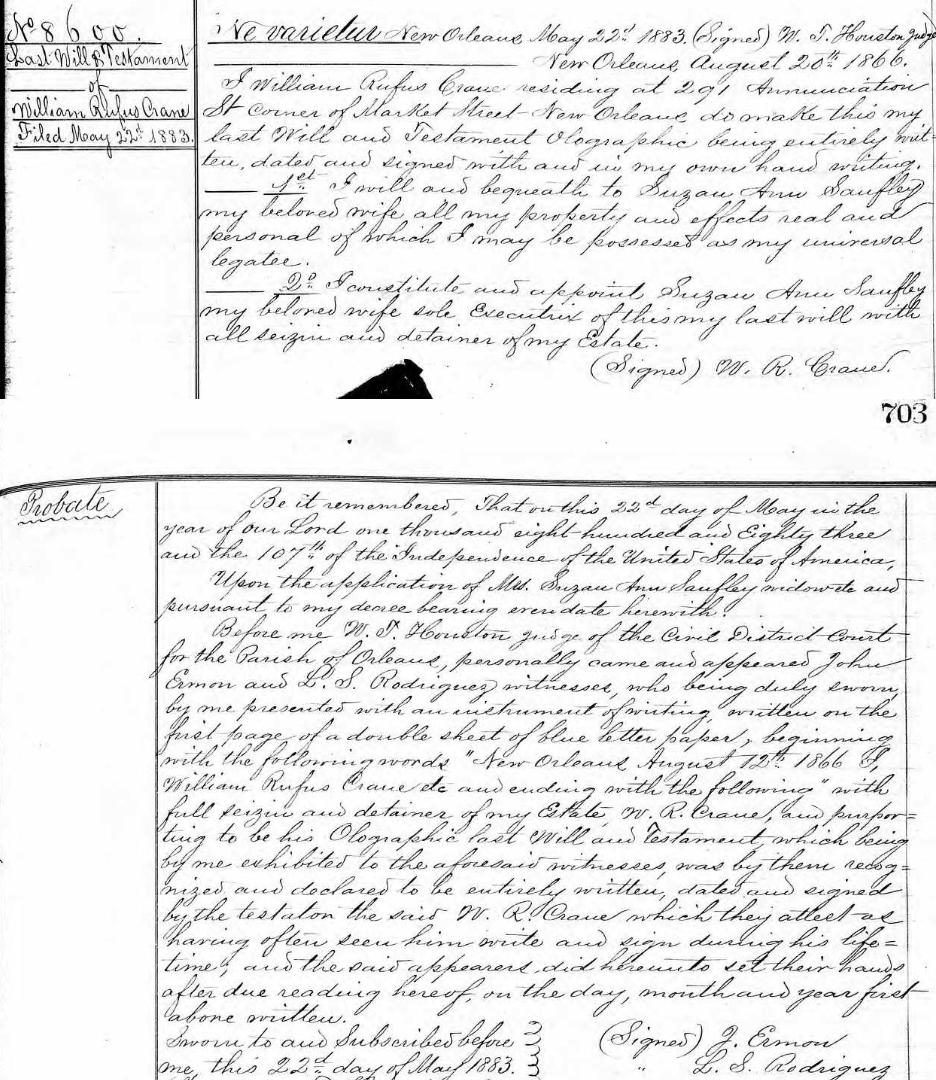 No 8600.
Last Will & Testament
of
William Rufus Crane
Filed May 22d 1883.
Ne varietur New Orleans May 22d 1883. (Signed) W. T. Houston Judge
New Orleans, August 20th 1866.
I William Rufus Crane residing at 291 Annunciation
St corner of Market Street New Orleans do make this my
last Will and Testament Olographic being entirely writ-
ten, dated and signed with and in my own hand writing.
1st I will and bequeath to Suzan Ann Saufley
my beloved wife, all my property and effects real and
personal of which I may be possessed as my universal
legatee.
2o I constitute and appoint Suzan Ann Saufley
my beloved wife sole Executrix of this my last will with
all seizin and detainer of my Estate.
(Signed) W. R. Crane.
703
Probate
Be it remembered, That on this 22d day of May in the
year of our Lord one thousand eight hundred and Eighty three
and the 107th of the Independence of the United States of America,
Upon the application of Mrs. Suzan Ann Saufley widow etc and
pursuant to my decree bearing even date herewith.
Before me W. T. Houston Judge of the Civil District Court
for the Parish of Orleans, personally came and appeared John
Ermon and L. S. Rodriguez witnesses, who being duly sworn
by me presented with an instrument of writing, written on the
first page of a double sheet of blue letter paper, beginning
with the following words "New Orleans August 12th 1866 I,
William Rufus Crane etc and ending with the following" with
full seizin and detainer of my Estate W. R. Crane, and purpor=
ting to be his Olographic last Will and Testament, which being
by me exhibited to the aforesaid witnesses, was by them recog=
nized and declared to be entirely written, dated and signed
by the testator the said W. R. Crane which they attest as
having often seen him write and sign during his life=
time", and the said appearers did hereunto set their hands
after due reading hereof, on the day, month and year first
above written.
Sworn to and Subscribed before } (Signed) J. Ermon
me, this 22d day of May 1883. } " L. S. Rodriguez